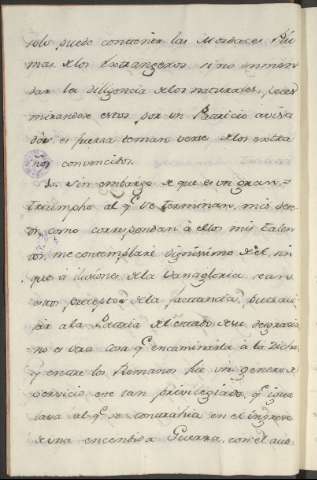 solo puede contener las Mordaces Plu
mas de los Extrangeros, si no inmen
dar la diligencia de los naturales, pues
mirandose estos por un Patricio avisa
dos, es fuerza teman verse de los extra
ños convencidos.
Sin embargo de que es un gran
triumpho al qe. se terminan mis dese
os, como correspondan à ellos mis talen
tos, me contemplaré dignissimo de el, sin
que à ilusiones de la Vanagloria, ni un
preceptor de la jactancia,
à la Patria del estado de su desgracia
no es otra cosa qe. encaminarla à la Dicha
y entre los Romanos fue un genero de
servicio este tan privilegiado, qe. igua
lava al qe. se contrahia en el ingreso
de una encendida Guerra, con el aus